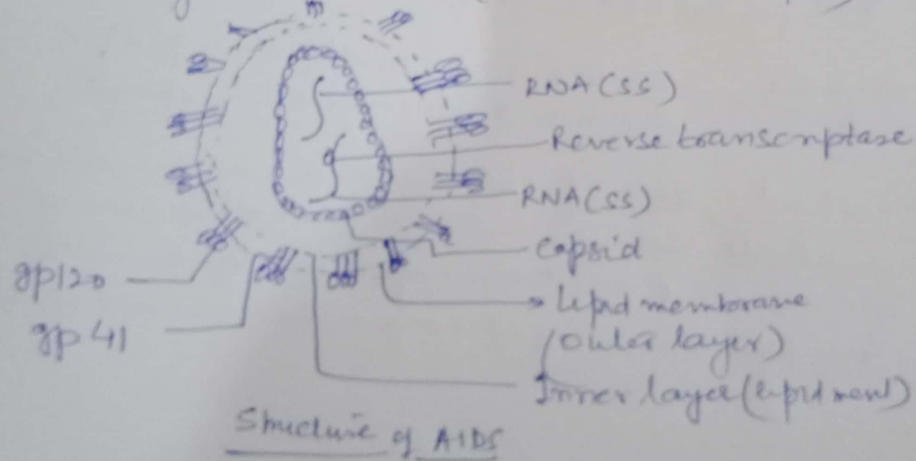 RNA(SS)
Reverse transcriptase
RNA(SS)
Capsid
gp120
Lipid membrane
(outer layer)
gp 41
Inner layer (lipid mem)
Structure of AIDS